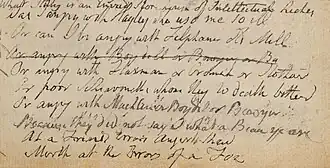 was I angry with Hayley who usd me so ill
Or can I be angry with Felphams old Mill
Or angry with Boydell or Bowyer or Ba
Or angry with Flaxman or Cromek or Stothard
Or poor Schiavonetti whom they to death botherd
Or angry with Macklin or Boydell or Bowyer
Because they did not say O what a Beau ye are
At a Friends Errors Anger shew
Mirth at the Errors of a Foe